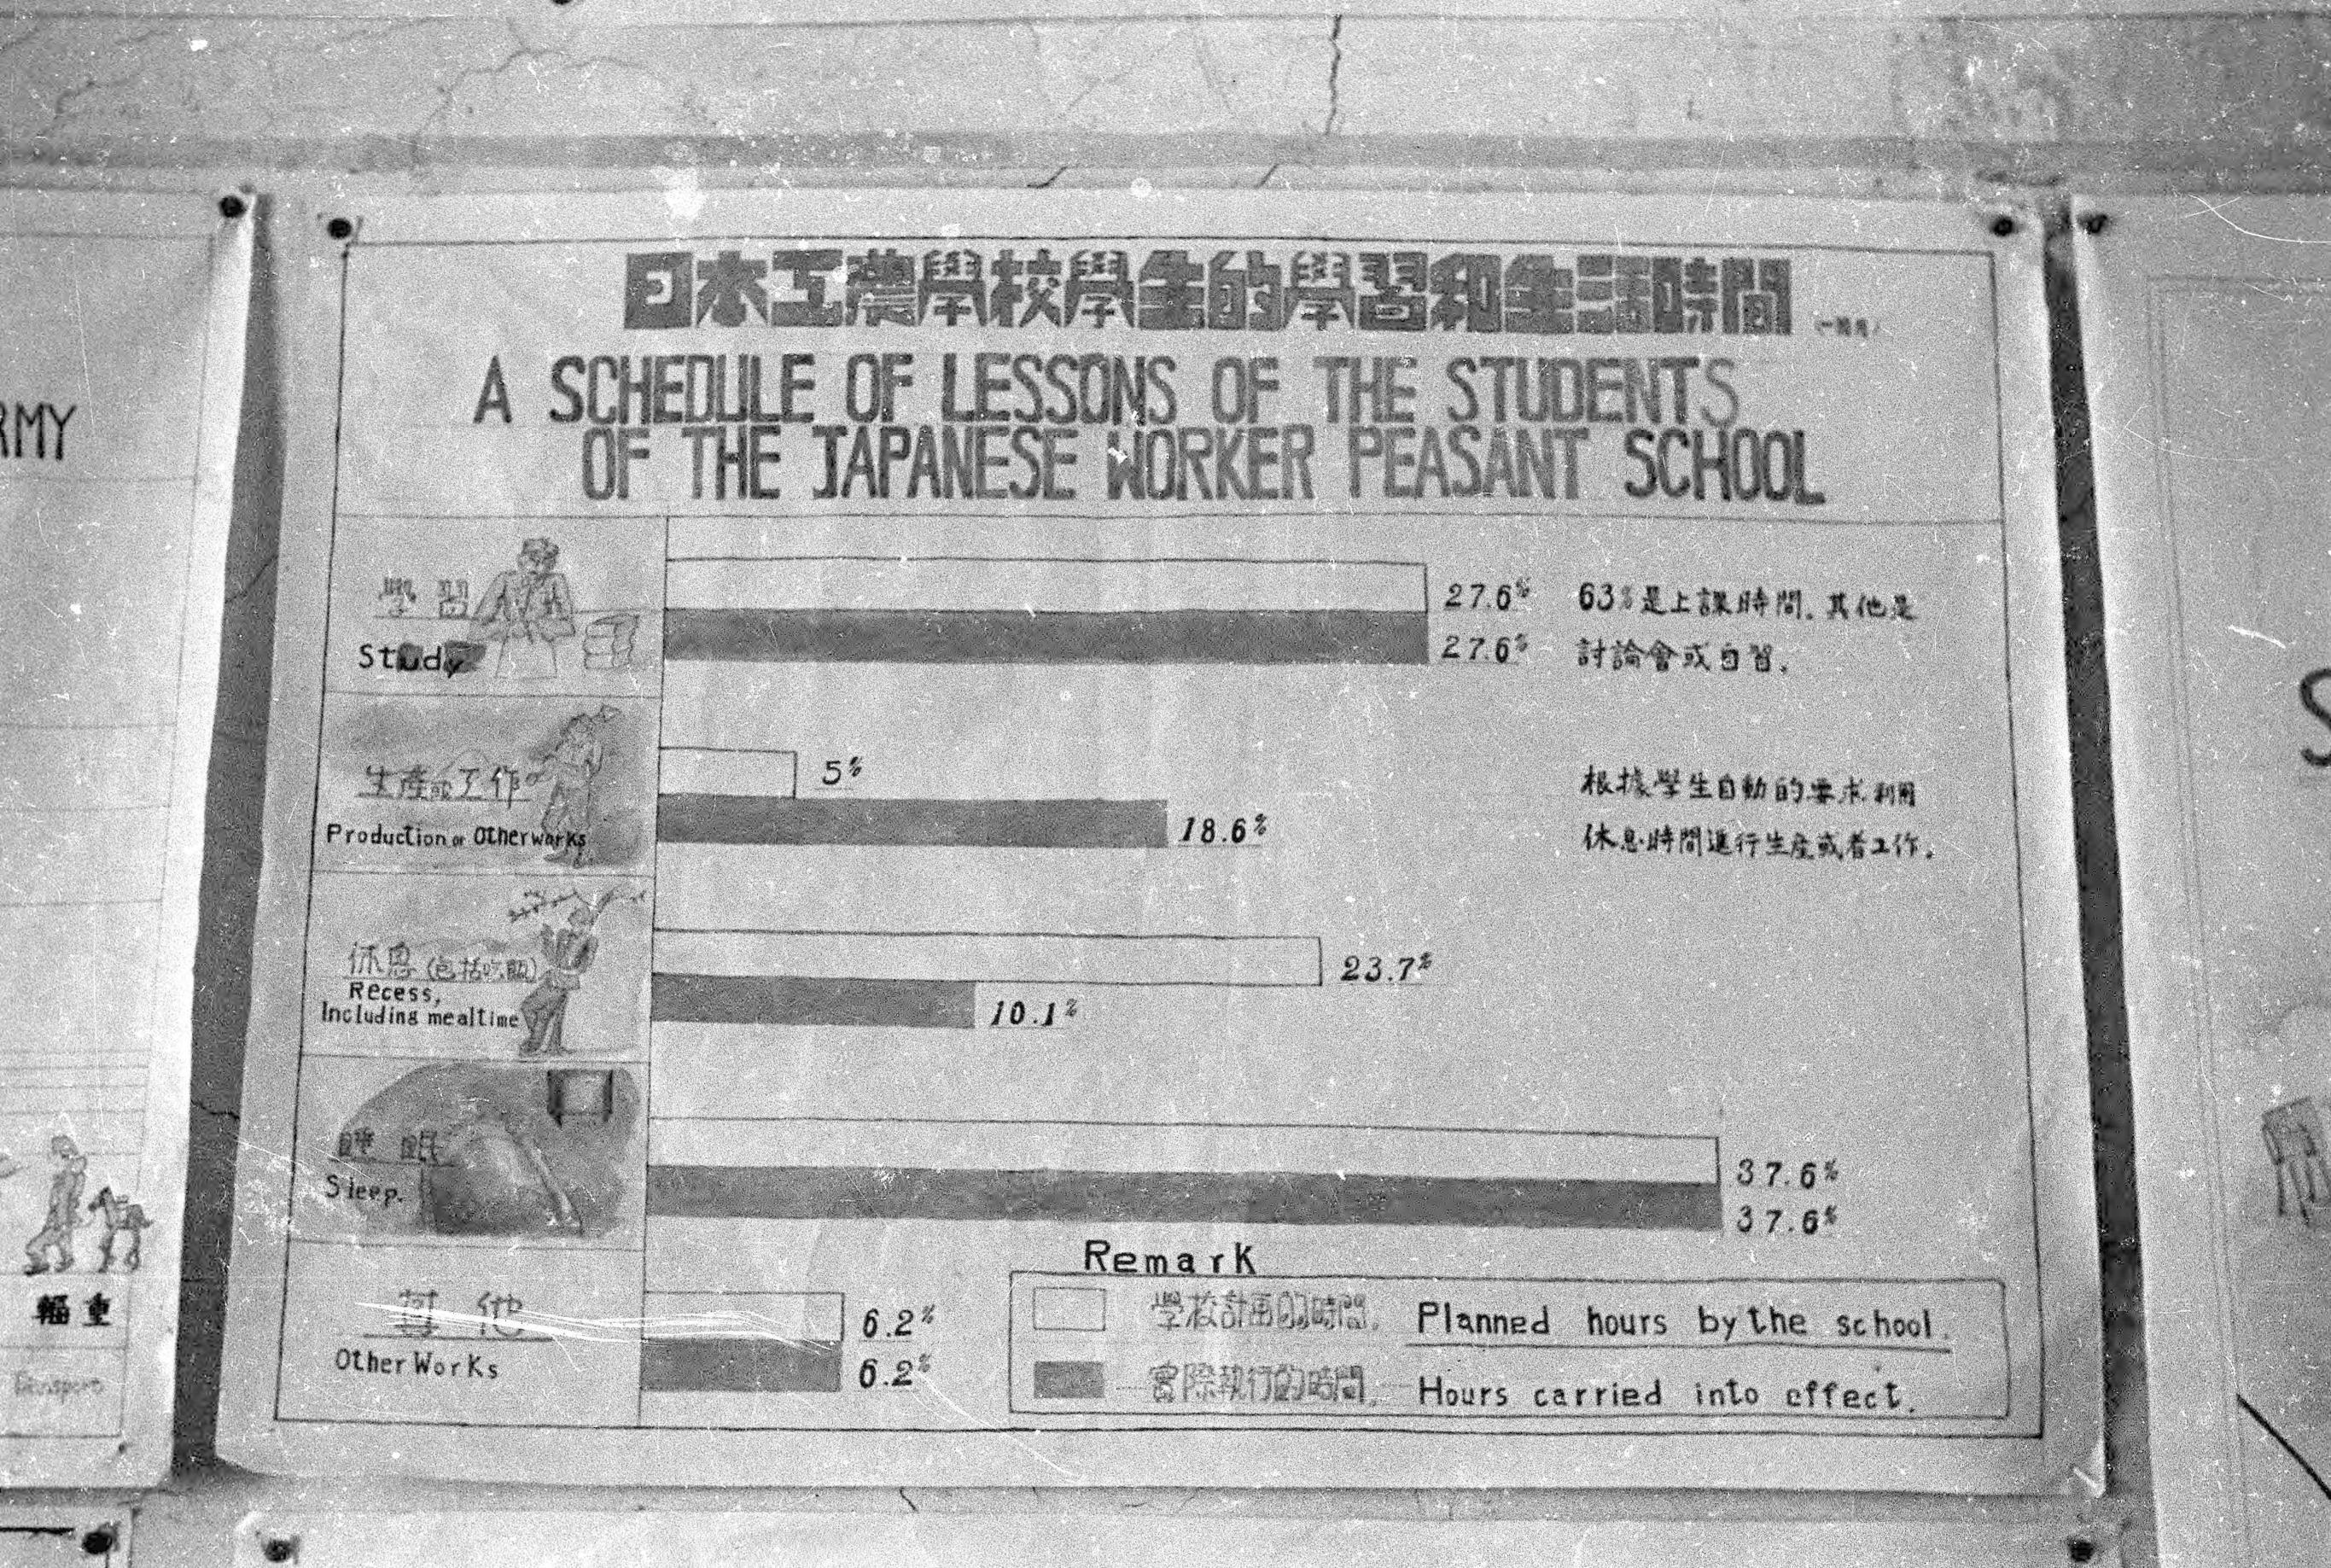 日本工農學校學生的學習和生活時間
A SCHEDULE OF LESSONS OF THE STUDENTS
OF THE JAPANESE WORKER PEASANT SCHOOL
學習
Study
27.6%
27.6%
63%是上課時間.其他是
討論會或自習.
生產或工作
Production or Otherworks
5%
18.6%
根據學生自動的要求利用
休息時間進行生產或者工作.
休息(包括吃飯)
Recess,
Including mealtime
23.7%
10.1%
睡眠
Sleep.
37.6%
37.6%
其他
Other Works
6.2%
6.2%
Remark
學校計画的時間. Planned hours by the school.
實際執行的時間. Hours carried into effect.
RMY
輜重
Transport
S